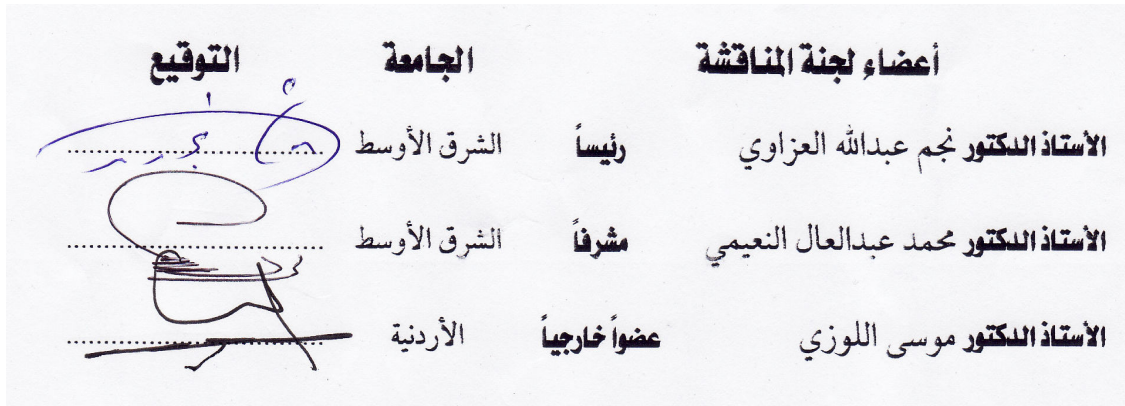 أعضاء لجنة المناقشة الجامعة التوقيع
الأستاذ الدكتور نجم عبدالله العزاوي رئيساً الشرق الأوسط ................................
الأستاذ الدكتور محمد عبدالعال النعيمي مشرفاً الشرق الأوسط ................................
الأستاذ الدكتور موسى اللوزي عضواً خارجياً الأردنية ................................